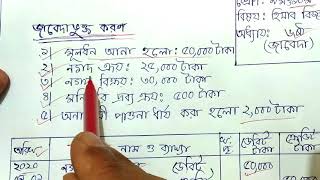 জাবেদাভুক্ত করণ
১) মূলধন আনা হলো: ৫০,০০০ টাকা
২) নগদ ক্রয়: ২৫,০০০ টাকা
৩) নগদ বিক্রয়: ৩০,০০০ টাকা
৪) মনিহারি দ্রব্য ক্রয়: ৫০০ টাকা
৫) অনাদায়ী পাওনা ধার্য করা হলো ২,০০০ টাকা
বিষয়: হিসাব বিজ্ঞান
অধ্যায়: ৬ষ্ঠ
(জাবেদা)
নাম ও ব্যাখ্যা
ডেবিট টাকা
ক্রেডিট টাকা
2020
ডেবিট
৫০,০০০